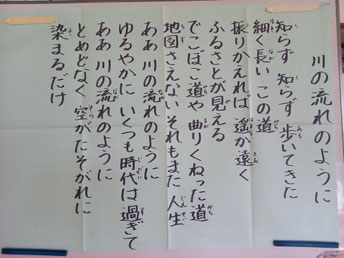 川の流れのように
知らず 知らず 歩いてきた
細く長い この道
振りかえれば 遥か遠く
ふるさとが見える
でこぼこ道や 曲りくねった道
地図さえない それもまた 人生
ああ 川の流れのように
ゆるやかに いくつも 時代は 過ぎて
ああ 川の流れのように
とめどなく 空がたそがれに
染まるだけ